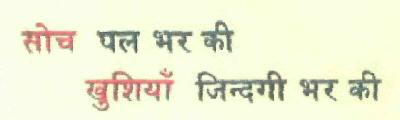 सोच पल भर की
खुशियाँ जिन्दगी भर की